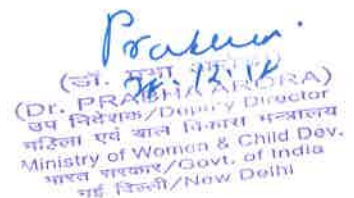 (डॉ.
(Dr. PRABHA ARORA)
उप निदेशक/Deputy Director
महिला एवं बाल विकास मन्त्रालय
Ministry of Women & Child Dev.
भारत सरकार/Govt. of India
नई दिल्ली/New Delhi